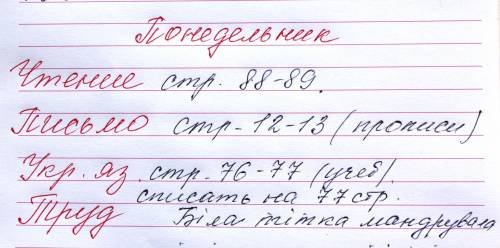 Понедельник
Чтение стр. 88-89.
Письмо стр-12-13 (прописи)
Укр. яз. стр. 76-77 (учеб).
списать на 77 стр.
Труд Біла тітка мандрувала